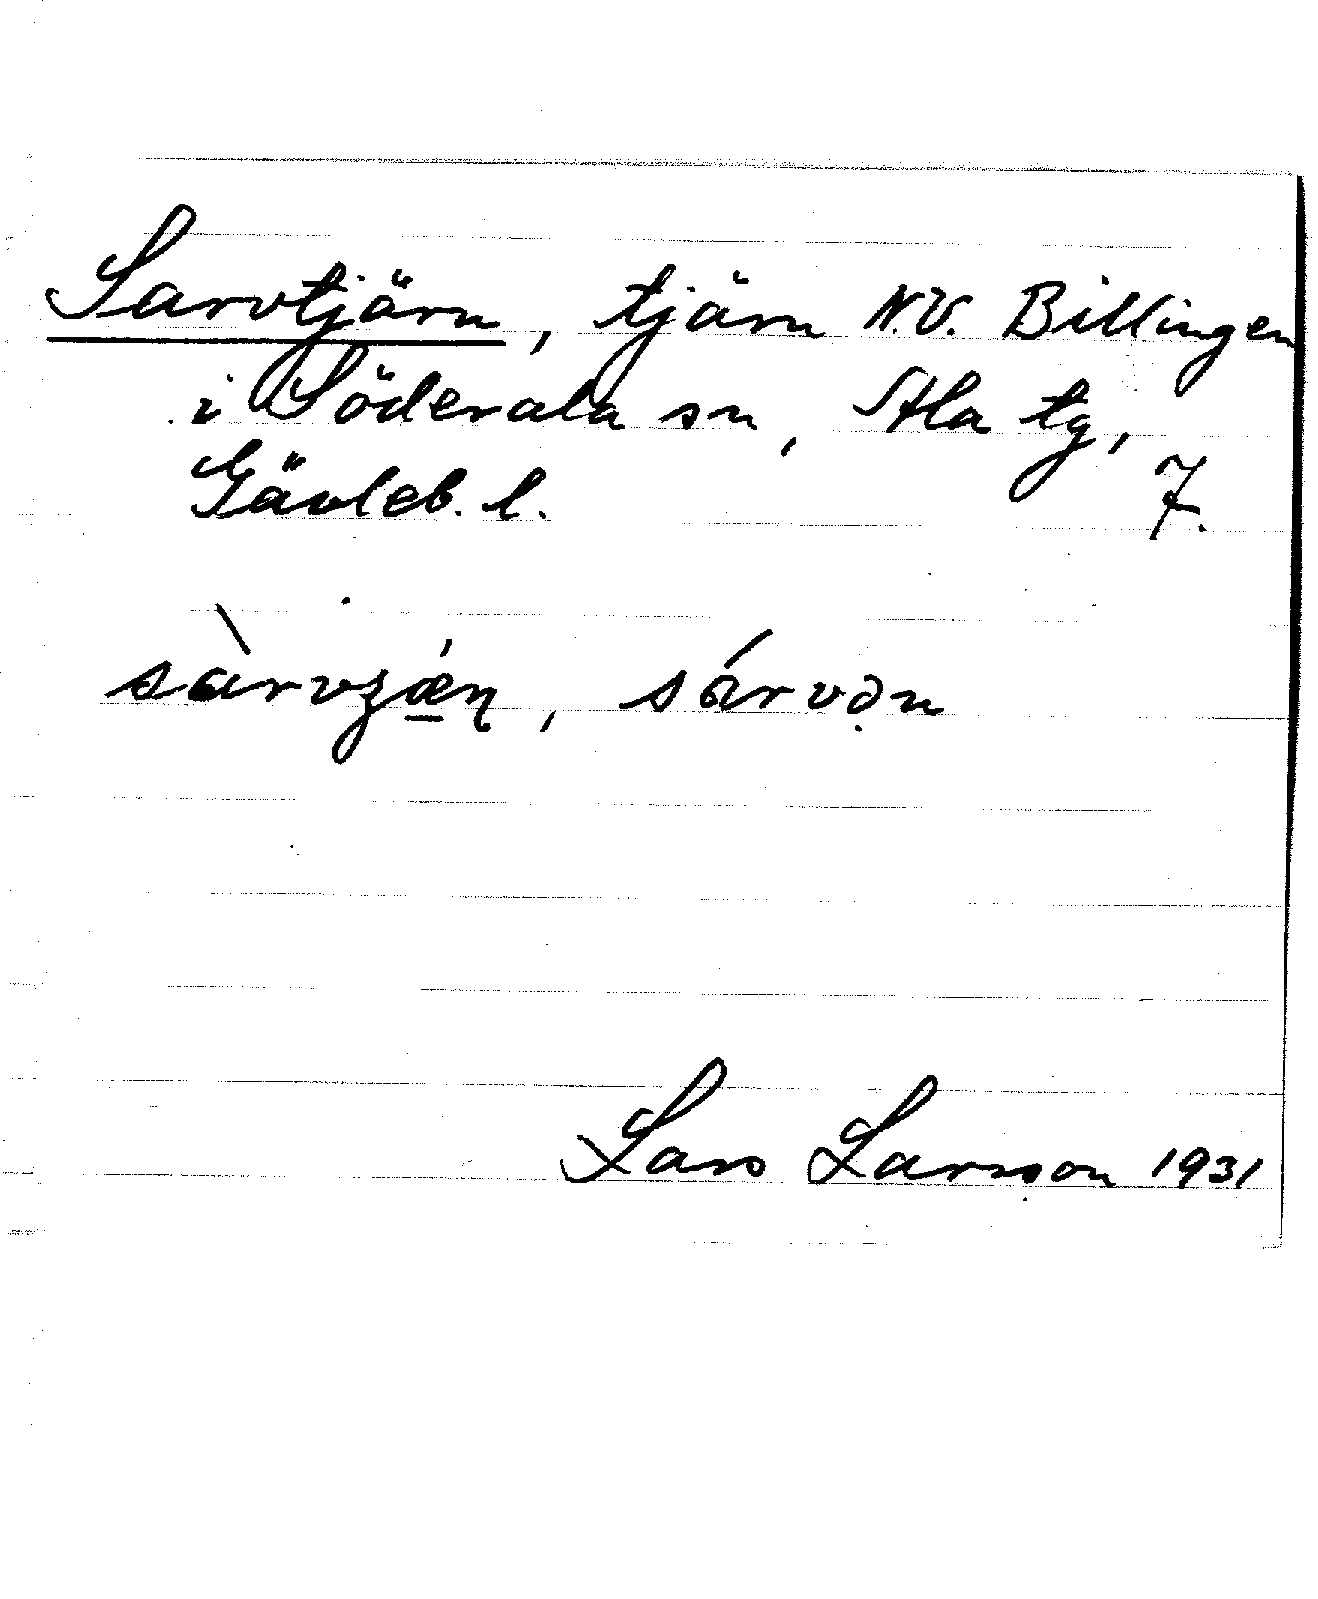 Sarvtjärn, tjärn N.V. Billingen
i Söderala sn, Ala tg,
Gävleb. l. 7.
sàrvʒǽn̨, sárvən
Lars Larsson 1931